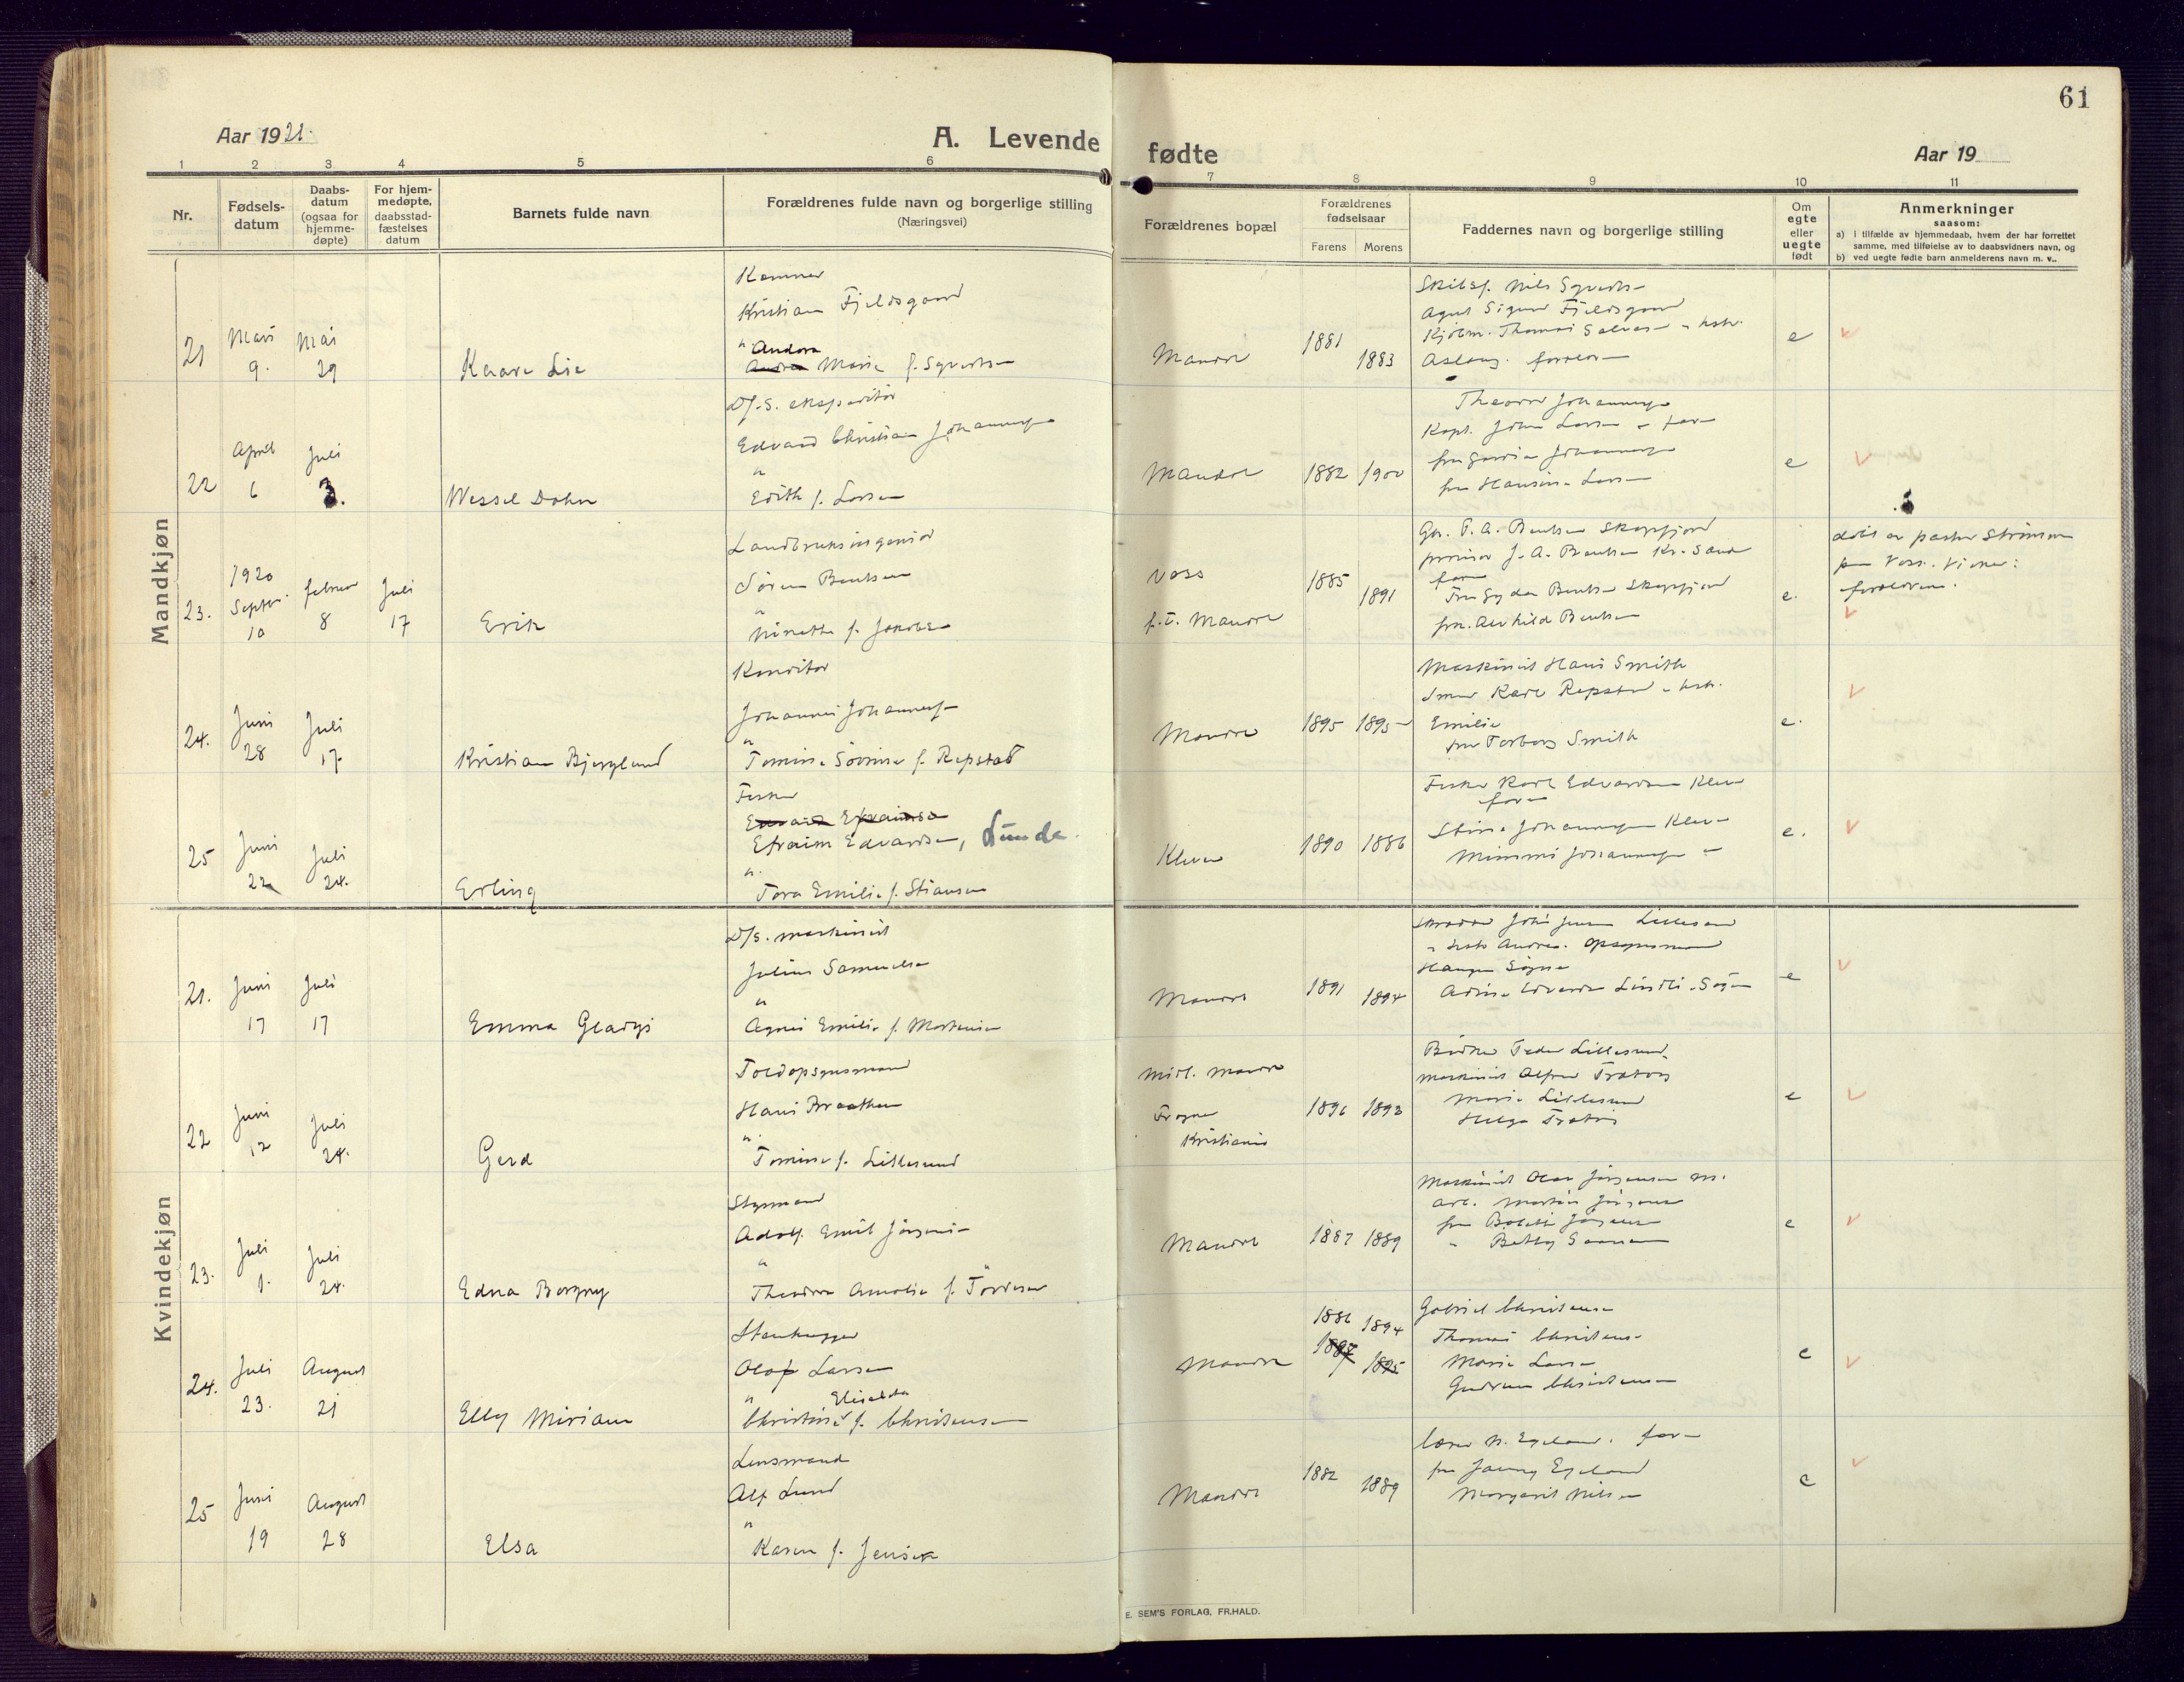 61
Aar 1921.
A. Levende fødte
Aar 19
1 2 3 4 5 6 7 8 9 10 11
Nr.
Fødsels-
datum
Daabs-
datum
(ogsaa for
hjemme-
døpte)
For hjem-
medøpte,
daabsstad-
fæstelses
datum
Barnets fulde navn
Forældrenes fulde navn og borgerlige stilling
(Næringsvei)
Forældrenes bopæl
Forældrenes
fødselsaar
Farens Morens
Faddernes navn og borgerlige stilling
Om
egte
eller
uegte
født
Anmerkninger
saasom:
a) i tilfælde av hjemmedaab, hvem der har forrettet
samme, med tilføielse av to daabsvidners navn, og
b) ved uegte fødte barn anmelderens navn m. v..
Mandkjøn
21
Mars
9.
Mai
29
Kaare Lie
Kristian Fjeldsgaard
"
Andora
Andrea Marie f. Syvertsen
Mandal
1881
1883
Skibsf. Nils Syvertsen
Agent Sigurd Fjeldsgaard
Kjøbm. Thomas Salvesen
Aslaug. forældrene
e
22
April
6
Juli
3.
Wessel Dohn
D/S. ekspeditør
Edvard Christian Johannessen
"
Edith f. Larsen
Mandal
1882 1900
Theodor Johannessen
Kapt. John Larsen
fru Johannessen
fru Hansine Larsen
e
23.
1920
Septbr.
10
februar
8
Juli
17
Erik
Landbruksingeniør
Søren Bentsen
"
Ninette f. Jakobsen
Voss
p.t. Mandal
1885
1891
P. A. Bentsen Skogsfjord
J. A. Bentsen Kr.sand
Fru Gyda Bentsen Skogsfjord
frk. Alvhild Bentsen
e.
døbt av pastor Strømme
paa Voss. Vidner:
forældrene.
24.
Juni
28
Juli
17.
Kristian Bjerglund
Konditor
Johannes Johannessen
"
Tomine Sovine f. Repstad
Mandal
1895 1895
Maskinist Hans Smith
Karl Repstad
Emilie
fru Torborg Smith
e.
25
Juni
22
Juli
24.
Erling
Fisker
Edvard Efraimsen
Efraim Edvardsen, Lunde.
"
Tora Emilie f. Stiansen
Kleven
1890 1886
Fisker Karl Edvardsen Kleven
Stine Johannessen Kleven
Mimmi Johannessen "
e.
Kvindekjøn
21.
Juni
17
Juli
17
Emma Gladys
D/S. maskinist
Julius Samuelsen
"
Agnes Emilie f. Mortensen
Mandal
1891 1894
e
22
Juni
12
Juli
24.
Gerd
Toldopsynsmand
Hans Braathen
"
Tomine f. Lillesund
Midl. Mandal
Frogner
Kristiania
1896 1893
Peder Lillesund
maskinist Alfred
Marie Lillesund
Helga
e
23.
Juli
1.
Juli
24.
Edna Borgny
Styrmand
Adolf Emil Jørgensen
"
Theodora Amalie f. Tørresen
Mandal
1887 1889
Maskinist Olav Jørgensen
Martin Jørgensen
fru Bolette Jørgensen
" Betty
e
24.
Juli
23.
August
21
Elly Miriam
Stenhugger
Olaf Larsen
"
Elisabeth
Christine f. Christensen
Mandal
1886 1894
1887 1895
Gabriel Christensen
Thomas Christensen
Marie Larsen
Gudrun Christensen
e
25
Juni
19
August
28
Elsa
Lensmand
Alf Lund
"
Karen f. Jensen
Mandal
1882
1889
lærer N. Egeland.
fru Jenny Egeland
Margarit Nilsen
e
E. SEM'S FORLAG, FR.HALD.